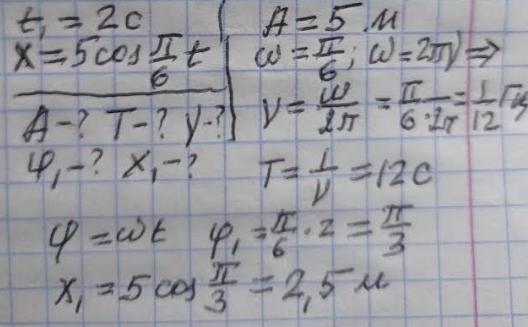 t₁ = 2с
x = 5 cos π/6 t
A - ? T - ? ν - ?
φ₁ - ? x₁ - ?
A = 5 м
ω = π/6; ω = 2πν ⇒
ν = ω/2π = π/6·2π = 1/12 Гц
T = 1/ν = 12с
φ = ωt φ₁ = π/6 · 2 = π/3
x₁ = 5 cos π/3 = 2,5 м